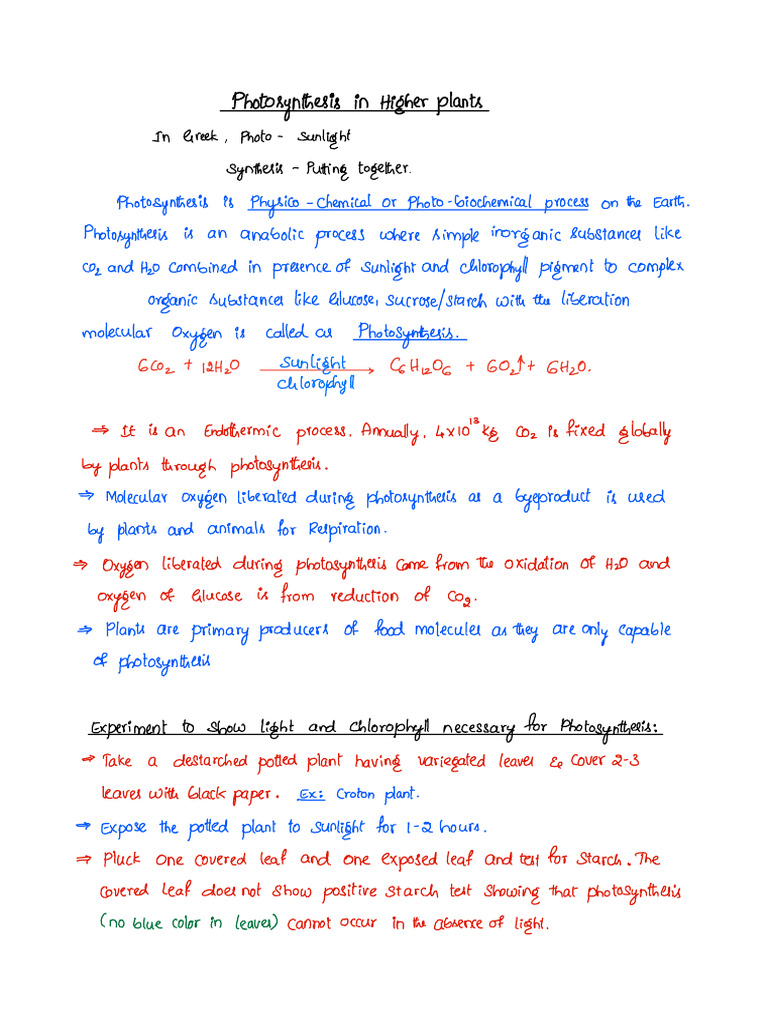 Photosynthesis in Higher plants
In Greek, Photo - Sunlight
Synthesis - Putting together.
Photosynthesis is Physico-Chemical or Photo-biochemical process on the Earth.
Photosynthesis is an anabolic process where simple inorganic substances like
CO₂ and H₂O combined in presence of sunlight and chlorophyll pigment to complex
organic substances like Glucose, sucrose/starch with the liberation
molecular Oxygen is called as Photosynthesis.
6CO₂ + 12H₂O Sunlight → C₆H₁₂O₆ + 6O₂↑ + 6H₂O.
Chlorophyll
⇒ It is an Endothermic process. Annually, 4×10¹³ kg CO₂ is fixed globally
by plants through photosynthesis.
⇒ Molecular oxygen liberated during photosynthesis as a byeproduct is used
by plants and animals for Respiration.
⇒ Oxygen liberated during photosynthesis come from the oxidation of H₂O and
oxygen of Glucose is from reduction of CO₂.
⇒ Plants are primary producers of food molecules as they are only capable
of photosynthesis
Experiment to show light and chlorophyll necessary for Photosynthesis:
⇒ Take a destarched potted plant having variegated leaves & cover 2-3
leaves with black paper. Ex: Croton plant.
⇒ Expose the potted plant to sunlight for 1-2 hours.
⇒ Pluck one covered leaf and one exposed leaf and test for starch. The
covered leaf does not show positive starch test showing that photosynthesis
(no blue color in leaves) cannot occur in the absence of light.